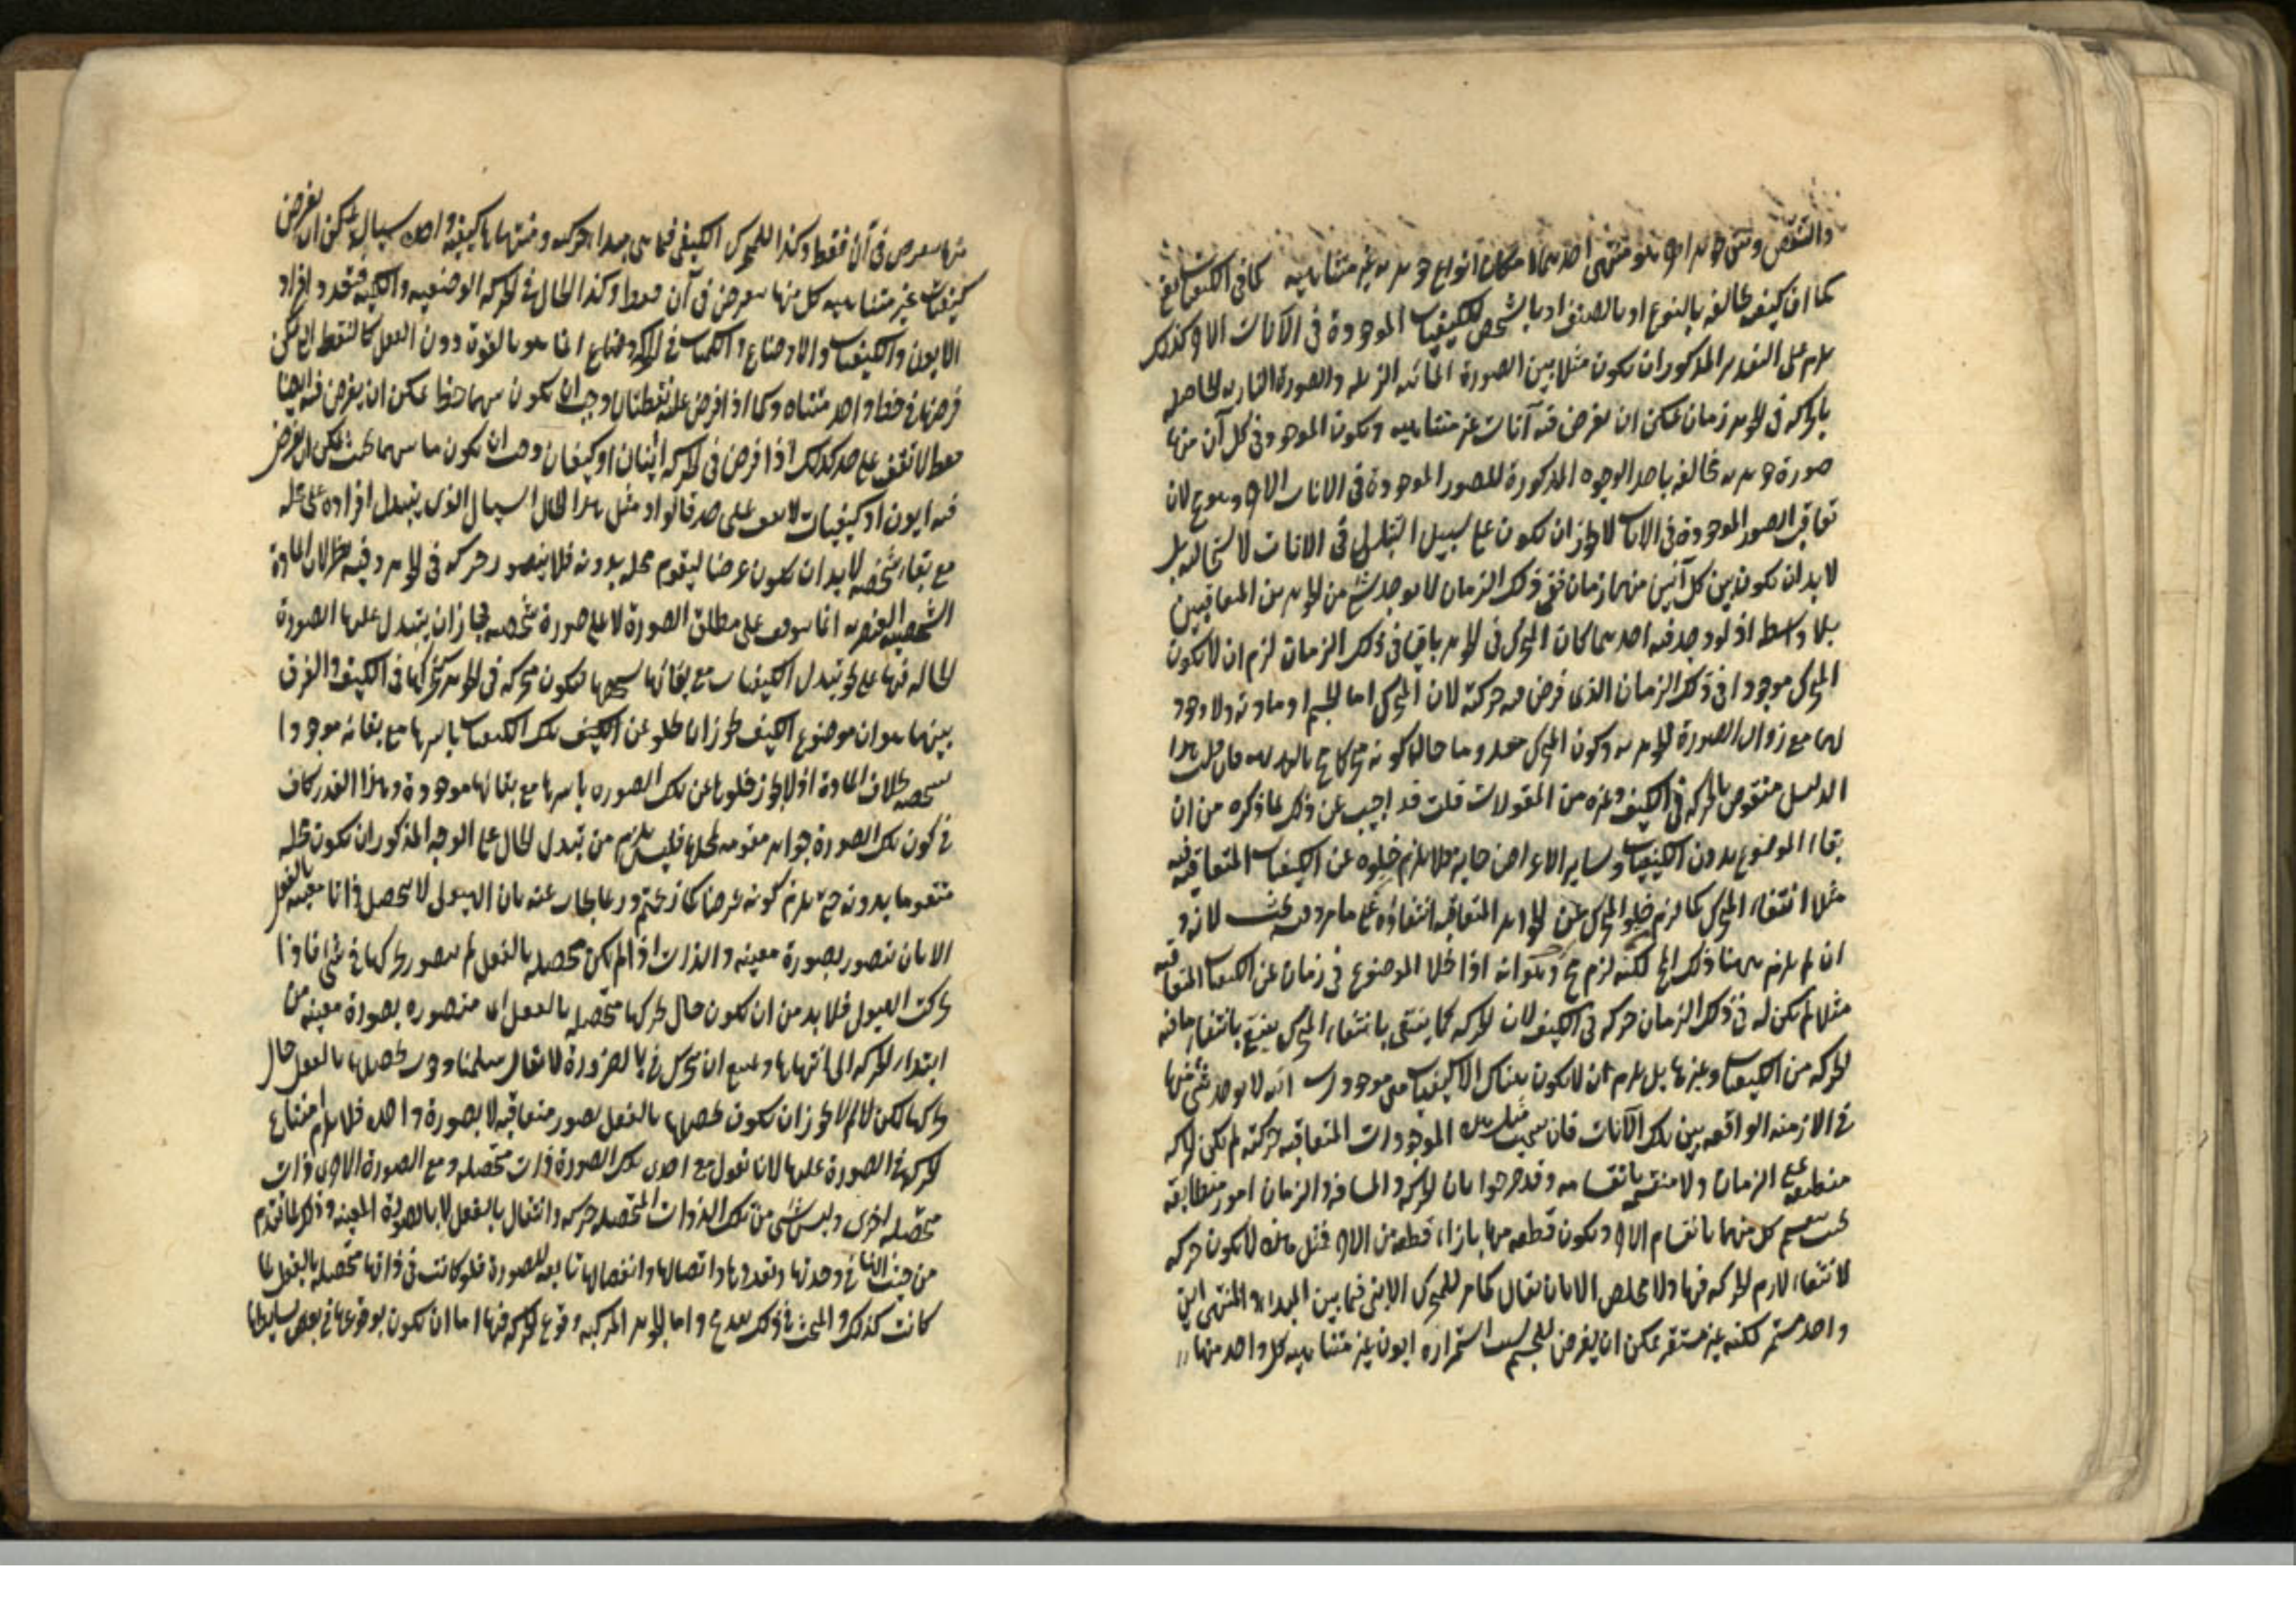 والتنقص وسى جوهر اخر هو منتهى احدهما لامكان انواع جوهريه غير متناهيه كما فى الكيفيات فمع
كما ان كيفيه مخالفه بالنوع او بالصنف او بالشخص للكيفيات الموجودة فى الآنات الاخر كذلك
يلزم على التقدير المذكور ان يكون مثلا بين الصورة المائيه الزايله والصورة الناريه الحاصله
بالحركه فى الجوهر زمان يمكن ان يفرض فيه آنات غير متناهيه ويكون الموجود فى كل آن منها
صورة جوهريه مخالفه باحد الوجوه المذكورة للصور الموجودة فى الانات الاخر وهو مح لان
تعاقب الصور الموجودة فى الانات لا يجوز ان يكون على سبيل التتالى فى الانات لاستحالته بل
لا بد ان يكون بين كل آنين منها زمان ففى ذلك الزمان لا يوجد شئ من الجوهرين المتعاقبين
بلا واسطه اذ لو وجد فيه احدهما كان المتحرك فى الجوهر باقيا فى ذلك الزمان لزم ان لا يكون
المتحرك موجودا فى ذلك الزمان الذى فرض فيه حركته لان المتحرك اما الجسم او مادته ولا وجود
لهما مع زوال الصورة الجوهريه وكون المتحرك معدوما حال كونه متحركا مح بالبديهه فان قلت هذا
الدليل منقوض بالحركه فى الكيف وغيره من المقولات قلت قد اجيب عن ذلك بما ذكره من ان
بقاء الموضوع بدون الكيفيات وساير الاعراض جايز فلا يلزم من خلوه عن الكيفيات المتعاقبه
مثلا انتفاء المتحرك كما لزم من خلو المتحرك عن الجواهر المتعاقبه انتفاؤه على ما مر وفيه بحث لانه و
ان لم يلزم ههنا ذلك المح لكنه لزم مح آخر وهو انه اذا خلا الموضوع فى زمان عن الكيفيات المتعاقبه
مثلا لم يكن له فى ذلك الزمان حركه فى الكيف لان الحركه كما ينتفى بانتفاء المتحرك ينتفى بانتفاء ما فيه
الحركه من الكيفيات وغيرها بل يلزم ان لا يكون هناك الا كيفيات هى موجودات آنيه لا يوجد شئ منها
فى الازمنه الواقعه بين تلك الآنات فان سميت مثل هذه الموجودات المتعاقبه حركته لم يكن الحركه
منطبقه على الزمان ولا منقسمه بانقسامه وقد صرحوا بان الحركه والمسافه والزمان امور متطابقه
بحيث ينقسم كل منها بانقسام الاخر ويكون قطعه منها بازاء قطعه من الاخر فمثل هذه لا يكون حركه
لانتفاء لازم الحركه فيها ولا مخلص الا بان يقال كما مر للمتحرك الاينى فيما بين المبداء والمنتهى اين
واحد مستمر لكنه غير مستقر يمكن ان يفرض للجسم بسبب استمراره ايون غير متناهيه كل واحد منها
منها يعرض فى آن فقط وكذا للمتحرك الكيفى فيما بين مبداء الحركه ومنتهاها كيفيه واحده سياله يمكن ان يفرض
كيفيات غير متناهيه كل منها يعرض فى آن فقط وكذا الحال فى الحركه الوضعيه والكميه فتعدد افراد
الايون والكيفيات والاوضاع والكميات فى الحركه وضاع انما هو بالقوة دون الفعل كالنقط التى يمكن
فرضها فى خط واحد متناه وكما اذا فرض عليه نقطتان وجب ان يكون بينهما خط يمكن ان يفرض فيه ايضا
نقط لا تقف على حد كذلك اذا فرض فى الحركه اينان او كيفيتان وجب ان يكون ما بينهما بحيث يمكن ان يفرض
فيه ايون او كيفيات لا يقف على حد قالوا ومثل هذا الحال السيال الذى يتبدل افراده على محله
مع بقاء شخصه لا بد ان يكون عرضا ليقوم محله بدونه فلا يتصور حركه فى الجوهر وفيه نظر لان المادة
الشخصيه العنصريه انما يتوقف على مطلق الصورة لا على صورة شخصيه فجاز ان يتبدل عليها الصورة
الحاله فيها على نحو تبدل الكيفيات مع بقائها بشخصها فيكون متحركه فى الجوهر كتحركها فى الكيف والفرق
بينهما هو ان موضوع الكيف يجوز ان يخلو عن الكيف تلك الكيفيات باسرها مع بقائه موجودا
بشخصه بخلاف المادة اذ لا يجوز خلوها عن تلك الصوره باسرها مع بقائها موجودة وهذا القدر كاف
فى كون تلك الصورة جواهر مقومه لمحلها فليس يلزم من تبدل الحال على الوجه المذكور ان يكون محله
متقوما بدونه حتى يلزم كونه عرضا كما زعمتم وربما يجاب عنه بان الهيولى لا يتحصل ذاتا معينه بالفعل
الا بان يتصور بصورة معينه والذات اذا لم يكن متحصله بالفعل لم يتصور تحركها فى شئ فاذا
تحركت الهيولى فلا بد من ان يكون حال تحركها متحصله بالفعل اى متصوره بصورة معينه من
ابتداء الحركه الى انتهائها ويمتنع ان يتحرك فى بالضرورة لا يقال سلمنا وجوب تحصلها بالفعل حال
تحركها لكن لم لا يجوز ان يكون تحصلها بالفعل بصور متعاقبه لا بصورة واحده فلا يلزم امتناع
تحركها فى الصورة عليها لانا نقول مع احدى تلك الصورة ذات متحصله ومع الصورة الاخرى ذات
متحصله اخرى وليس شئ من تلك الذوات المتحصله متحركه وانتقال بالفعل لا بالصورة المعينه وذكر ما تقدم
من حيث انها فى وحدتها وتعددها واتصالها وانفصالها تابعه للصورة فلو كانت فى ذاتها متحصله بالفعل لما
كانت كذلك والبحث فى ذلك بعد مح واما الجواهر المركبه وقوع الحركه فيها اما ان يكون بوقوعها فى بعض بسايطها